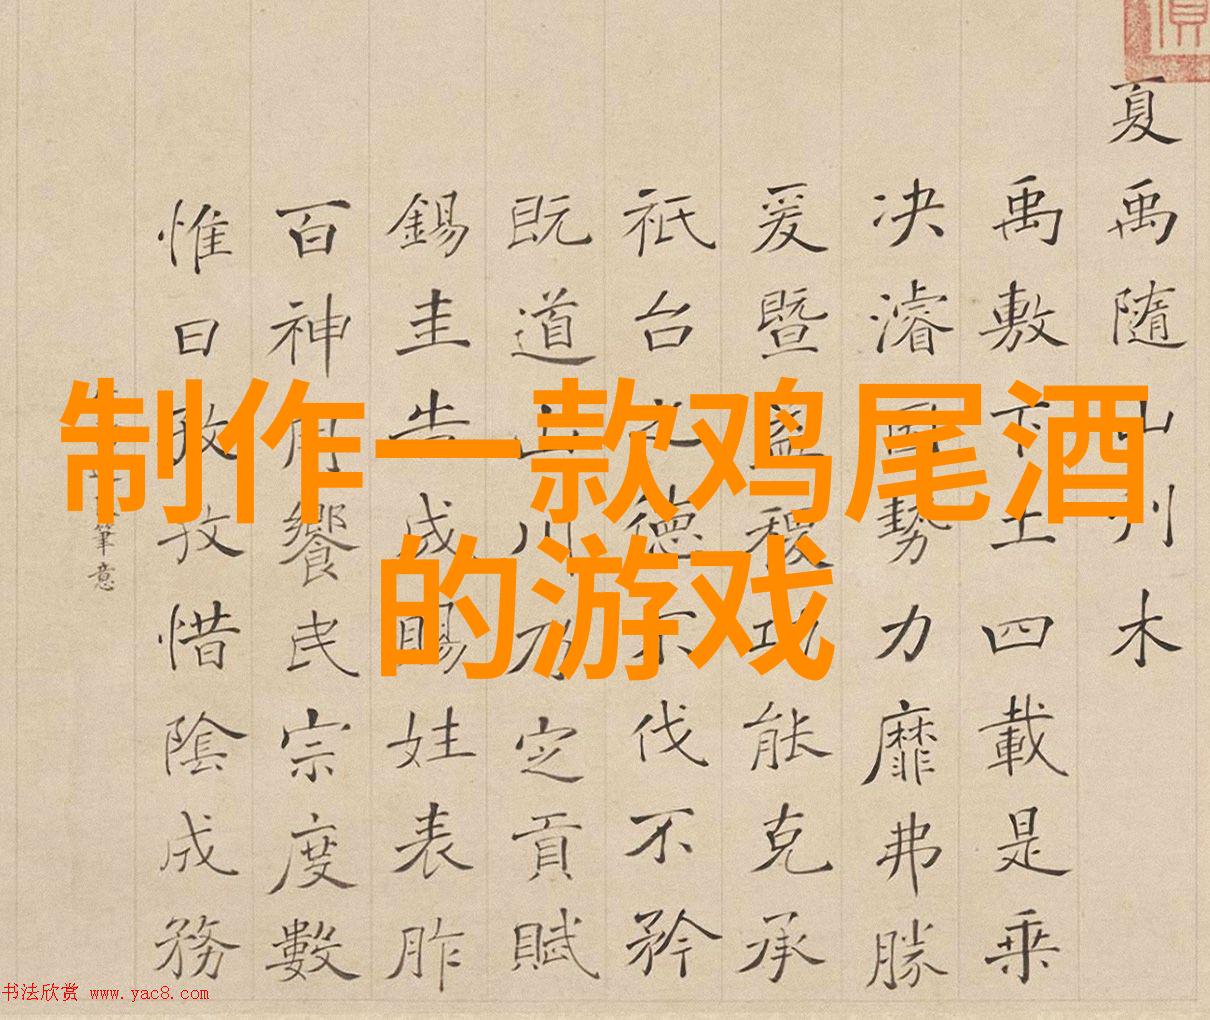 制作一款鸡尾酒
的游戏
夏禹隨山刊木
禹敷下土四載是乘
决濬勢力靡弗勝
爰暨益稷功能克承
祇台德不伐不矜
既道山川乃定貢賦
錫圭告成賜姓表胙
百神用饗民宗度數
惟日孜孜惜陰成務
筆意
书法欣赏 www.yac8.com